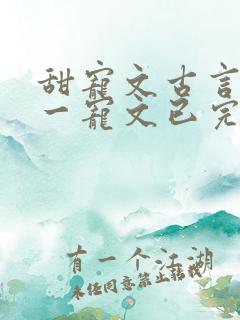 甜寵文古言
一寵文已完
有一个江湖
未经同意禁止转载